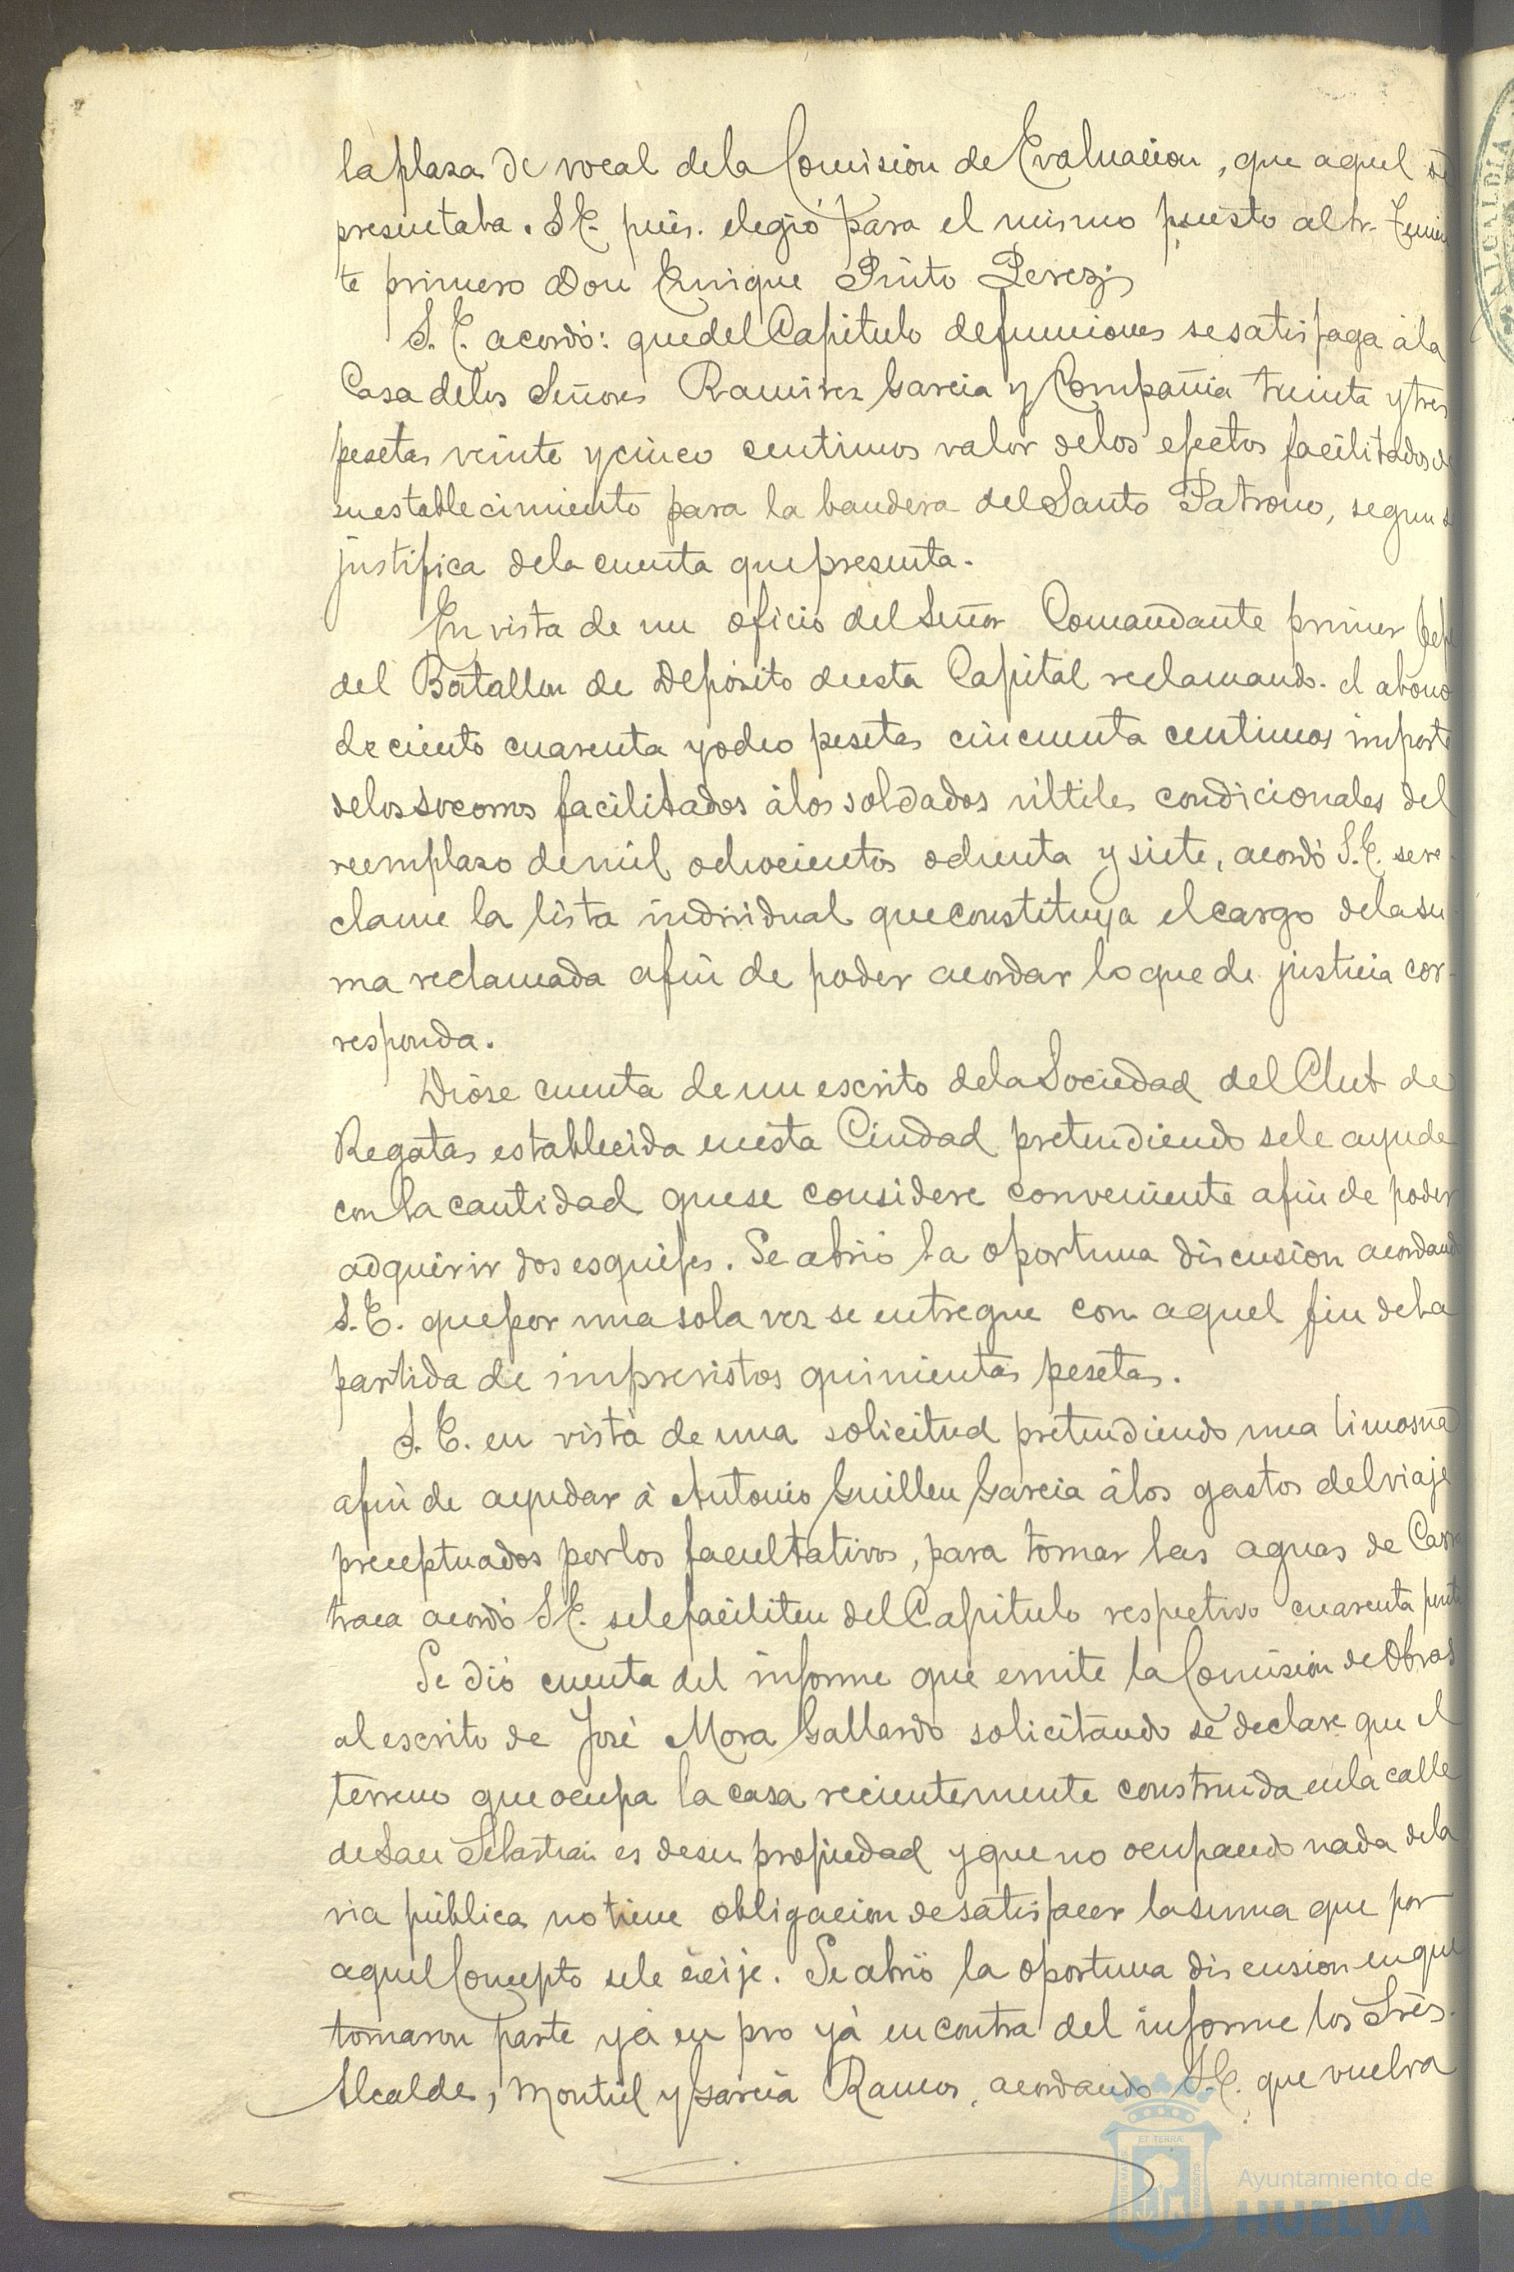 la plaza de vocal de la Comision de Evaluacion, que aquel
presentaba. S.E. pues. elegió para el mismo puesto al Sr. Tenien
te primero Don Enrique Pinto Perez.
S. E. acordó: que del Capitulo de funciones se satisfaga á la
Casa de los Señores Ramirez Garcia y Compañia treinta y tres
pesetas veinte y cinco centimos valor de los efectos facilitados
su establecimiento para la bandera del Santo Patrono, segun
justifica de la cuenta que presenta.
En vista de un oficio del Señor Comandante primer Gefe
del Batallon de Depósito de esta Capital reclamando. el abono
de ciento cuarenta y ocho pesetas cincuenta centimos importe
de los socorros facilitados á los soldados útiles condicionales del
reemplazo de mil ochocientos ochenta y siete, acordó S.E. se re
clame la lista individual que constituya el cargo de la su
ma reclamada a fin de poder acordar lo que de justicia cor-
responda.
Dióse cuenta de un escrito de la Sociedad del Club de
Regatas establecida en esta Ciudad pretendiendo se le ayude
con la cantidad que se considere conveniente a fin de poder
adquirir dos esquifes. Se abrió la oportuna discusion acordando
S.E. que por una sola vez se entregue con aquel fin de la
partida de imprevistos quinientas pesetas.
S.E. en vista de una solicitud pretendiendo una limosna
a fin de ayudar á Antonio Guillen Garcia á los gastos del viaje
preceptuados por los facultativos, para tomar las aguas de Carra
traca acordó S.E. se le faciliten del Capitulo respectivo cuarenta
Se dió cuenta del informe que emite la Comision de Obras
al escrito de José Mora Gallardo solicitando se declare que el
terreno que ocupa la casa recientemente construida en la calle
de San Sebastian es de su propiedad y que no ocupando nada de la
via pública no tiene obligacion de satisfacer la suma que por
aquel Concepto se le exije. Se abrió la oportuna discusion en que
tomaron parte yá en pro yá en contra del informe los Sres.
Alcalde, Montiel y Garcia Ramos, acordando S.E. que vuelva
Ayuntamiento de
HUELVA